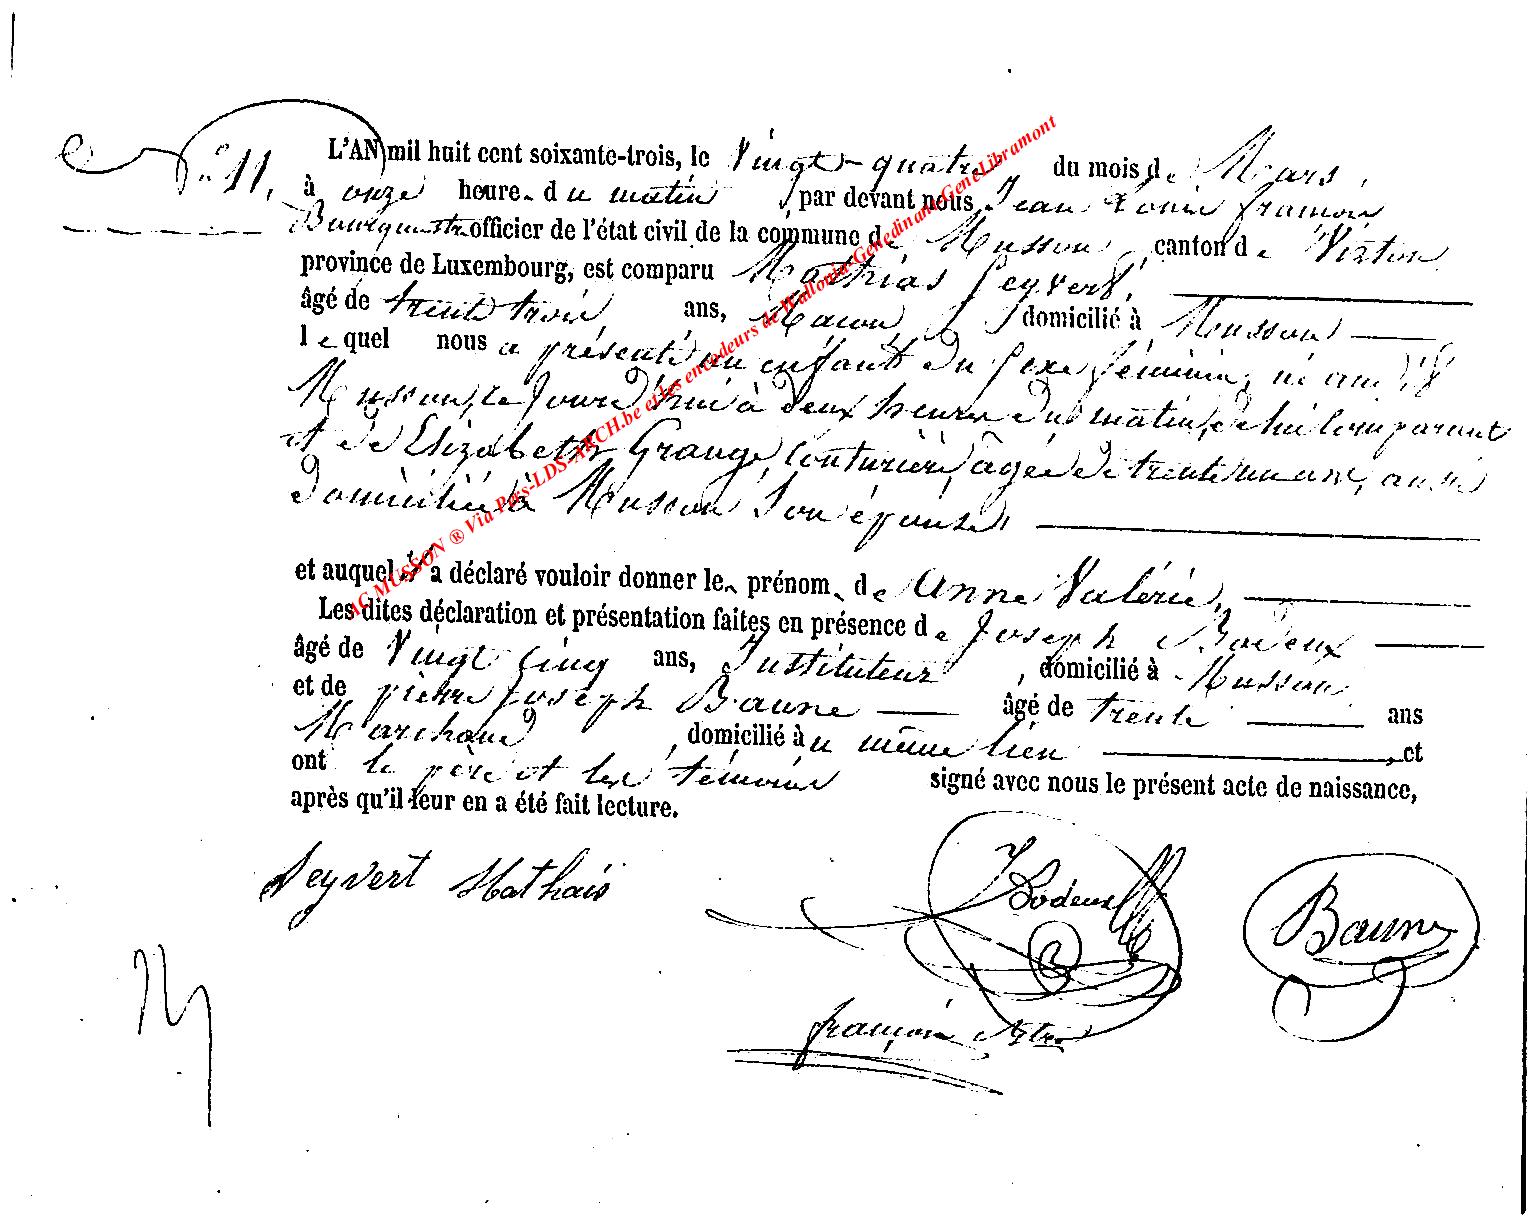 n° 11.
L'AN mil huit cent soixante-trois, le Vingt-quatre du mois de Mars,
à onze heure du matin par devant nous Jean Louis françois
Bourgmestre officier de l'état civil de la commune de Musson, canton de Virton,
province de Luxembourg, est comparu Mathias Seyvert,
âgé de trente trois ans, Maçon, domicilié à Musson
lequel nous a présenté un enfant du sexe féminin, né au dit
Musson, ce Jourd'hui à deux heures du matin, de lui Comparant
et de Elizabeth Grange, Couturière, âgée de trente un ans, aussi
domiciliée à Musson Son épouse,
et auquel il a déclaré vouloir donner le prénom de Anne Valérie,
Les dites déclaration et présentation faites en présence de Joseph Bodeux
âgé de Vingt Cinq ans, Instituteur, domicilié à Musson
et de pierre Joseph Baune âgé de trente ans
Marchand, domicilié au même lieu, et
ont le père et les témoins signé avec nous le présent acte de naissance,
après qu'il leur en a été fait lecture.
Seyvert Mathais
J Bodeux
Baune
françois
AC MUSSON ® Via Pars-LDS-ARCH.be et les encodeurs de Wallonia-Genedinant-GeneLibramont